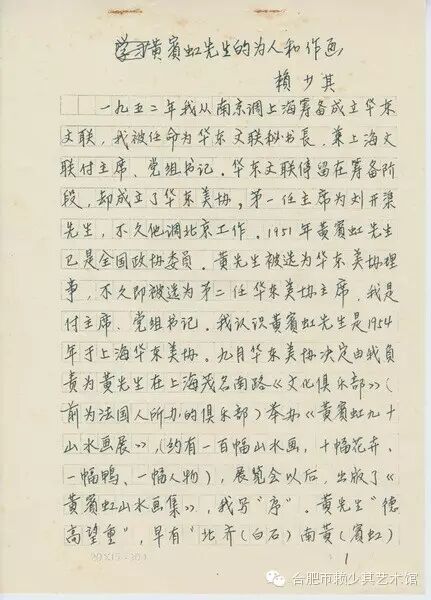 学习黄賓虹先生的为人和作画
賴少其
一九五二年我从南京调上海筹备成立华东
文联，我被任命为华东文联秘书長，兼上海文
联付主席、党组书记。华东文联停留在筹备阶
段，却成立了华东美协。第一任主席为刘开渠
先生，不久他调北京工作。1951年黄賓虹先生
已是全国政协委员。黄先生被选为华东美协理
事，不久即被选为第二任华东美协主席，我是
付主席、党组书记。我认识黄賓虹先生是1954
年于上海华东美协。九月华东美协决定由我负
责为黄先生在上海茂名南路《文化俱乐部》（
前为法国人所办的俱乐部）举办《黄賓虹九十
山水画展》，（约有一百幅山水画，十幅花卉、
一幅鴨、一幅人物），展览会以后，出版了《
黄賓虹山水画集》，我写“序”。黄先生“德
高望重”，早有“北齐（白石）南黄（賓虹）
1
20×15=300
合肥市赖少其艺术馆